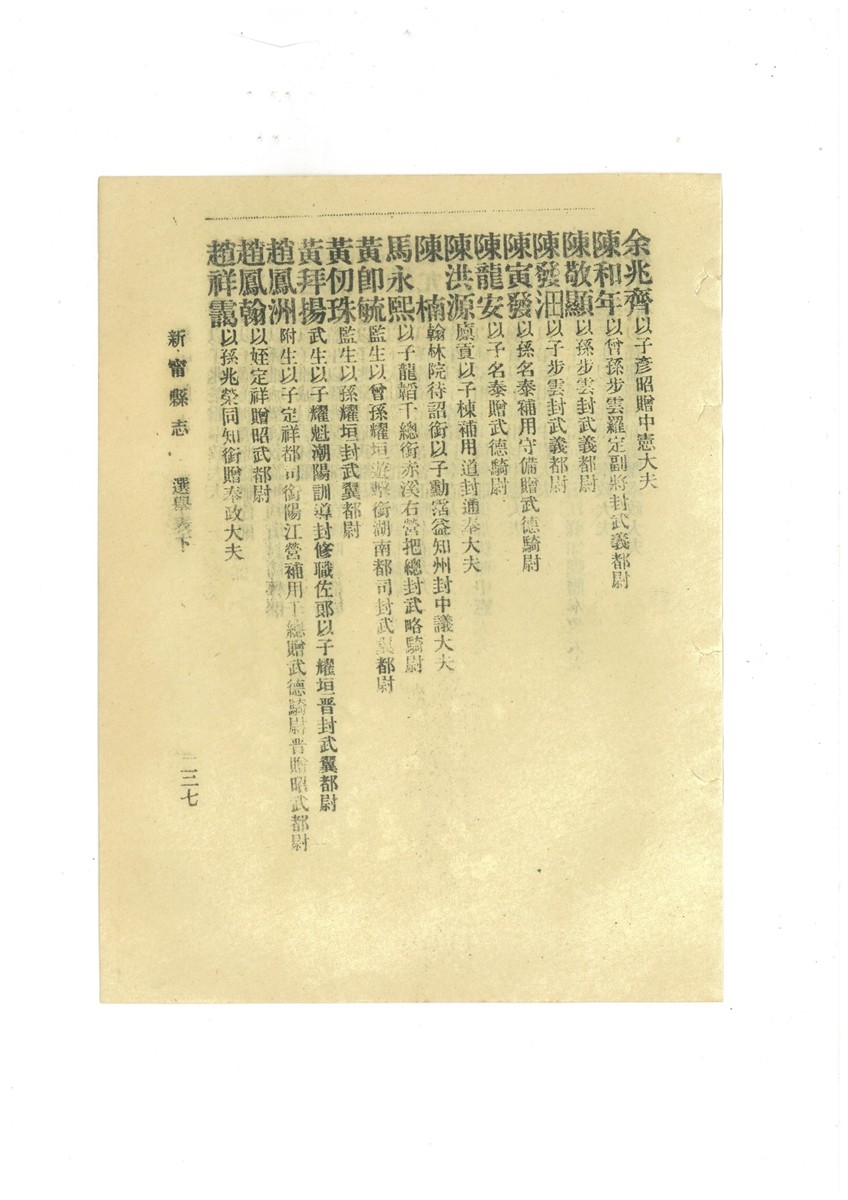 余兆齊以子彥昭贈中憲大夫
陳和年以曾孫步雲羅定副將封武義都尉
陳敬顯以孫步雲封武義都尉
陳發沺以子步雲封武義都尉
陳寅發以孫名泰補用守備贈武德騎尉
陳龍安以子名泰贈武德騎尉
陳洪源廩貢以子棟補用道封通奉大夫
陳楠翰林院待詔銜以子勳霑益知州封中議大夫
馬永熙以子龍韜千總銜赤溪右營把總封武略騎尉
黃卽毓監生以曾孫耀垣遊擊銜湖南都司封武翼都尉
黃仞珠監生以孫耀垣封武翼都尉
黃拜揚武生以子耀魁潮陽訓導封修職佐郎以子耀垣晉封武翼都尉
趙鳳洲附生以子定祥都司銜陽江營補用千總贈武德騎尉晉贈昭武都尉
趙鳳翰以姪定祥贈昭武都尉
趙祥靄以孫兆榮同知銜贈奉政大夫
新甯縣志 選舉表下 二三七